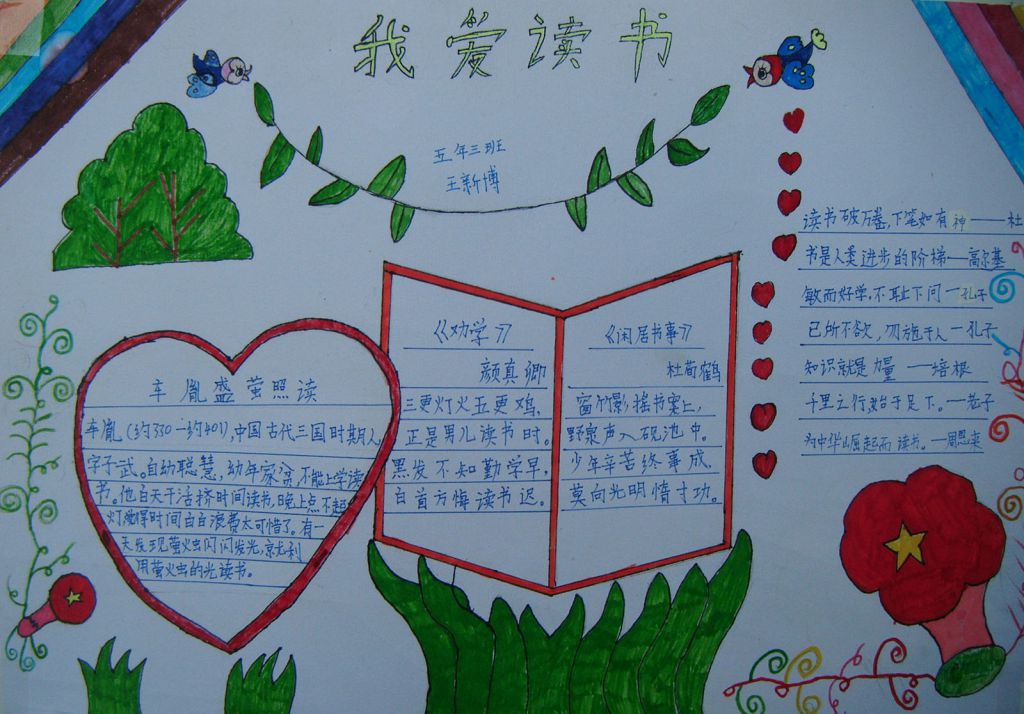 我爱读书
五年三班
王新博
车胤盛萤照读
车胤(约330一约401),中国古代三国时期人,
字子武。自幼聪慧,幼年家贫,不能上学读
书。他白天干活挤时间读书,晚上点不起
灯,觉得时间白白浪费太可惜了。有一
天发现萤火虫闪闪发光,就利
用萤火虫的光读书。
《劝学》
颜真卿
三更灯火五更鸡,
正是男儿读书时。
黑发不知勤学早,
白首方悔读书迟。
《闲居书事》
杜荀鹤
窗竹影摇书案上,
野泉声入砚池中。
少年辛苦终事成,
莫向光明惰寸功。
读书破万卷,下笔如有神——杜
书是人类进步的阶梯—高尔基
敏而好学,不耻下问—孔子
己所不欲,勿施于人—孔子
知识就是力量—培根
千里之行,始于足下。—老子
为中华崛起而读书。—周恩来